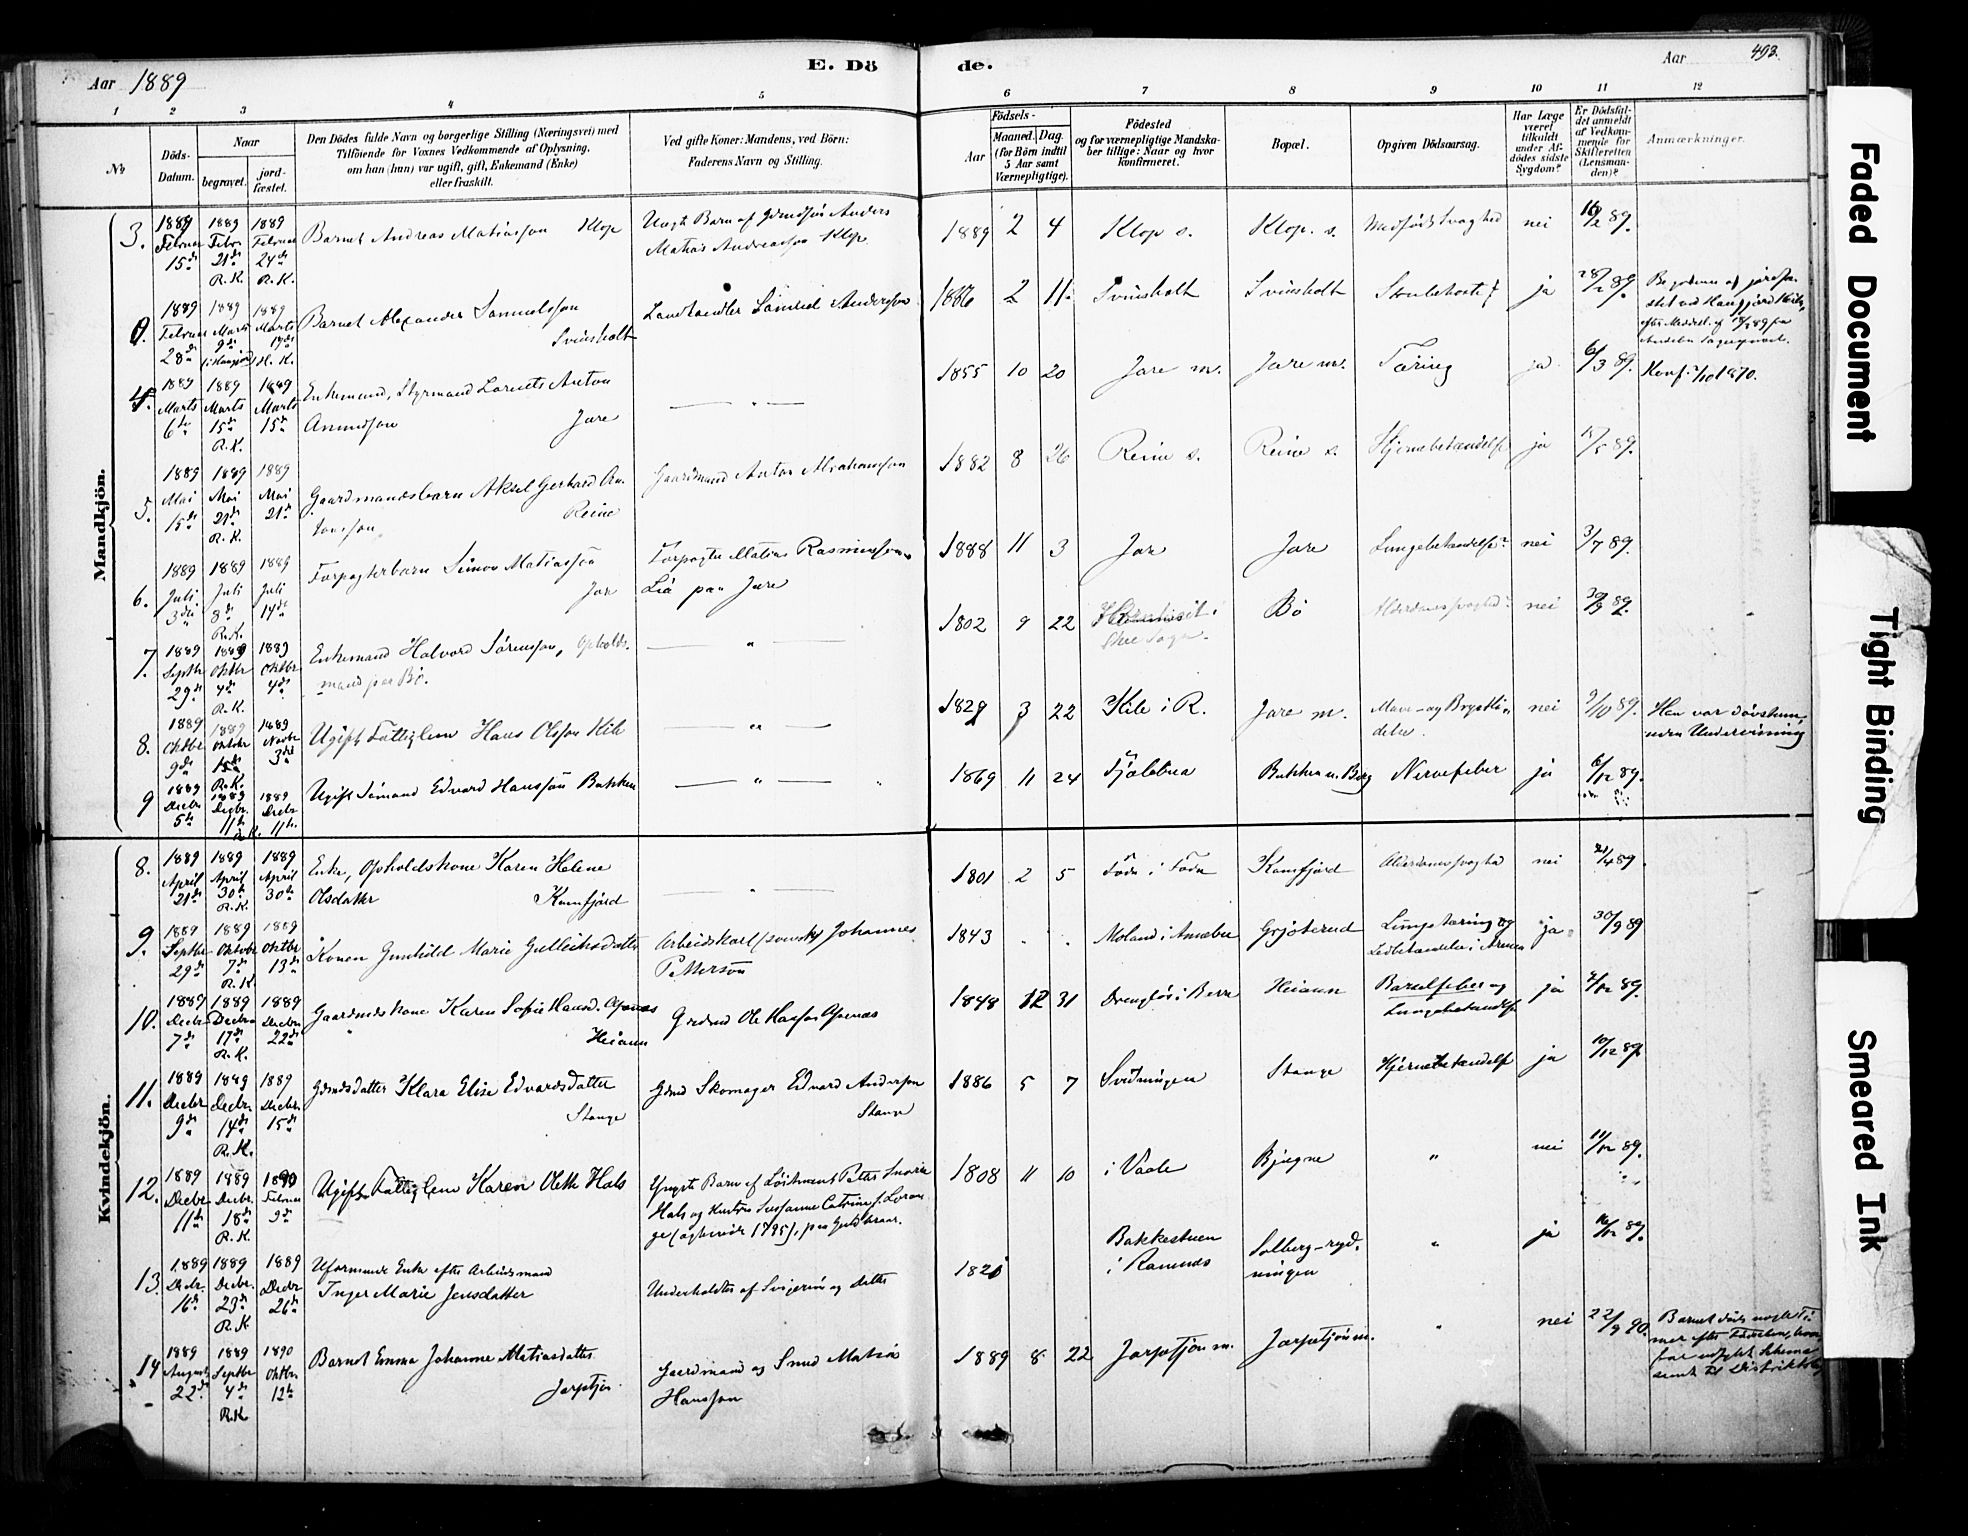 Aar 1889
E. Dö de.
Aar
493.
1 2 3 4 5 6 7 8 9 10 11 12
No
Döds-
Datum.
Naar
begravet.
jord-
fæstet.
Den Dödes fulde Navn og borgerlige Stilling (Næringsvei) med
Tilföiende for Voxnes Vedkommende af Oplysning,
om han (hun) var ugift, gift, Enkemand (Enke)
eller fraskilt.
Ved gifte Koner: Mandens, ved Börn:
Faderens Navn og Stilling.
Födsels-
Aar
Maaned. Dag.
(for Börn indtil
5 Aar samt
Værnepligtige).
Födested
og for værnepligtige Mandska-
ber tillige: Naar og hvor
konfirmeret.
Bopæl.
Opgiven Dödsaarsag.
Har Læge
været
tilkaldt
under Af-
dödes sidste
Sygdom?
Er Dödsfal-
det anmeldt
af Vedkom-
mende for
Skifteretten
(Lensman-
den)?
Anmærkninger.
Mandkjön.
3.
1889 Februar 15de
1889 Febr 21de R.K.
1889 Februar 24de R.K.
Barnet Andreas Matiasson Klop
Uægte Barn af Gmdsön Anders
Matias Andreassen Klop.
1889 2 4 Klop s. Klop. s. Medfödt Svaghed nei 16/2 89.
1889 Februar 28de
1889 Marts 9de
1889 Marts 17de H. K.
Barnet Alexander Samuelssøn
Svinsholt
Landhandler Samuel Anderssøn
1886 2 11. Svinsholt Svinsholt Strubehoste ja 28/2 89.
4.
1889 Marts 6te
1889 Marts 15de R.K.
1889 Marts 15de
Enkemand, Styrmand Lornts Anton
Amundsson Jare
— " —
1855 10 20 Jare m. Jare m. Tæring ja 6/3 89. Konf. 2/10 1870.
5.
1889 Mai 15de
1889 Mai 21de R.K.
1889 Mai 21de
Gaardmandsbarn Aksel Gerhard An-
tonsson Reine
Gaardmand Anton Abrahamson
1882 8 26 Reine s. Reine s. Hjernebetændelse ja 15/5 89.
6.
1889 Juli 3die
1889 Juli 8de R.K.
1889 Juli 14de
Forpagterbarn Simon Matiassøn
Jare
Forpagter Matias Rasmussøn
Lia paa Jare
1888 11 3 Jare Jare Lungebetændelse nei 3/7 89.
7.
1889 Septbr 29de
1889 Oktbr 4de R.K.
1889 Oktbr 4de
Enkemand Halvord Sørensson, Opholds-
mand paa Bö.
— " —
1802 9 22 Bö Alderdomssvaghed nei 30/9 89.
8.
1889 Oktbr 9de
1889 Oktobr 15de R.K.
1889 Novbr 3die
Ugift Fattiglem Hans Olsson Kile
— " —
1829 3 22 Kile i R. Jare m. Mave- og Brystli-
delse. nei 9/10 89. Han var dövstum,
uden Undervisning
9
1889 Decbr 5te
1889 Decbr 11te R.K.
1889 Decbr 11te
Ugift Sömand Edvard Hanssøn Bakken
— " — "
1869 11 24 Fjelebua Bakken u. Berg Nervefeber ja 6/12 89.
Kvindekjön.
8.
1889 April 21de
1889 April 30te R.K.
1889 April 30te
Enke, Opholdskone Karen Helene
Olsdatter Kamfjord
— " —
1801 2 5 Födn i Födn Kamfjord Alderdomssvaghed nei 21/4 89.
9.
1889 Septbr 29de
1889 Oktobr 7de R.K.
1889 Oktbr 13de
Konen Gunhild Marie Gulleiksdatter
Arbeidskarl (svensk) Johannes
Petterson
1843 . . Moland i Annebu Grjöterud Lungetæring og
Ledbetændelse i Armen ja. 30/9 89
10.
1889 Decbr 7de
1889 Decbr 17de R.K.
1889 Decbr 22de
Gaardmdskone Karen Sofie Hansd. Aasnæs
Heiann
Grdmd Ole Hansson Aasnæs
1848 12 31 Heiann Barselfeber og
Lungebetændelse ja 7/12 89.
11.
1889 Decbr 9de
1889 Decbr. 14de R.K.
1889 Decbr. 15de
Gdmdsdatter Klara Elise Edvardsdatter
Stange
Gdmd Skomager Edvard Anderssøn
Stange
1886 5 7 Svidningen Stange Hjernebetændelse ja 10/12 89.
12.
1889 Decbr 11te
1889 Decbr. 18de R.K.
1890 Februar 9de
Ugift Fattiglem Karen Oleth Hals
Yngste Barn af Löitnant Petter Snorre
Hals og Hustru Susanne Catrine f. Loran-
ge
1808 11 10 i Vaale Bjuegne " nei 11/12 89.
13.
1889 Decbr. 16de
1889 Decbr. 23de R.K
1889 Decbr 26de
Uformuende Enke efter Arbeidsmand
Inger Marie Jensdatter
Underholdtes af Svigersön og datter
1821 Bakkestuen
i Ramnæs Solberg-ryd-
ningen " ja 16/12 89.
14
1889 August 22de
1889 Septbr 4de R.K.
1890 Oktbr 12te
Barnet Emma Johanne Matiasdatter
Jarpetjön.
Gaardmand og Smed Matias
Hansson
1889 8 22 Jarpetjön m. Jarpetjön m. " nei 22/9 90. Barnet döde nogle Ti-
mer efter Födselen, hvor-
for udfyldt Schema
sendt til Distriktslæg
Faded Document
Tight Binding
Smeared Ink